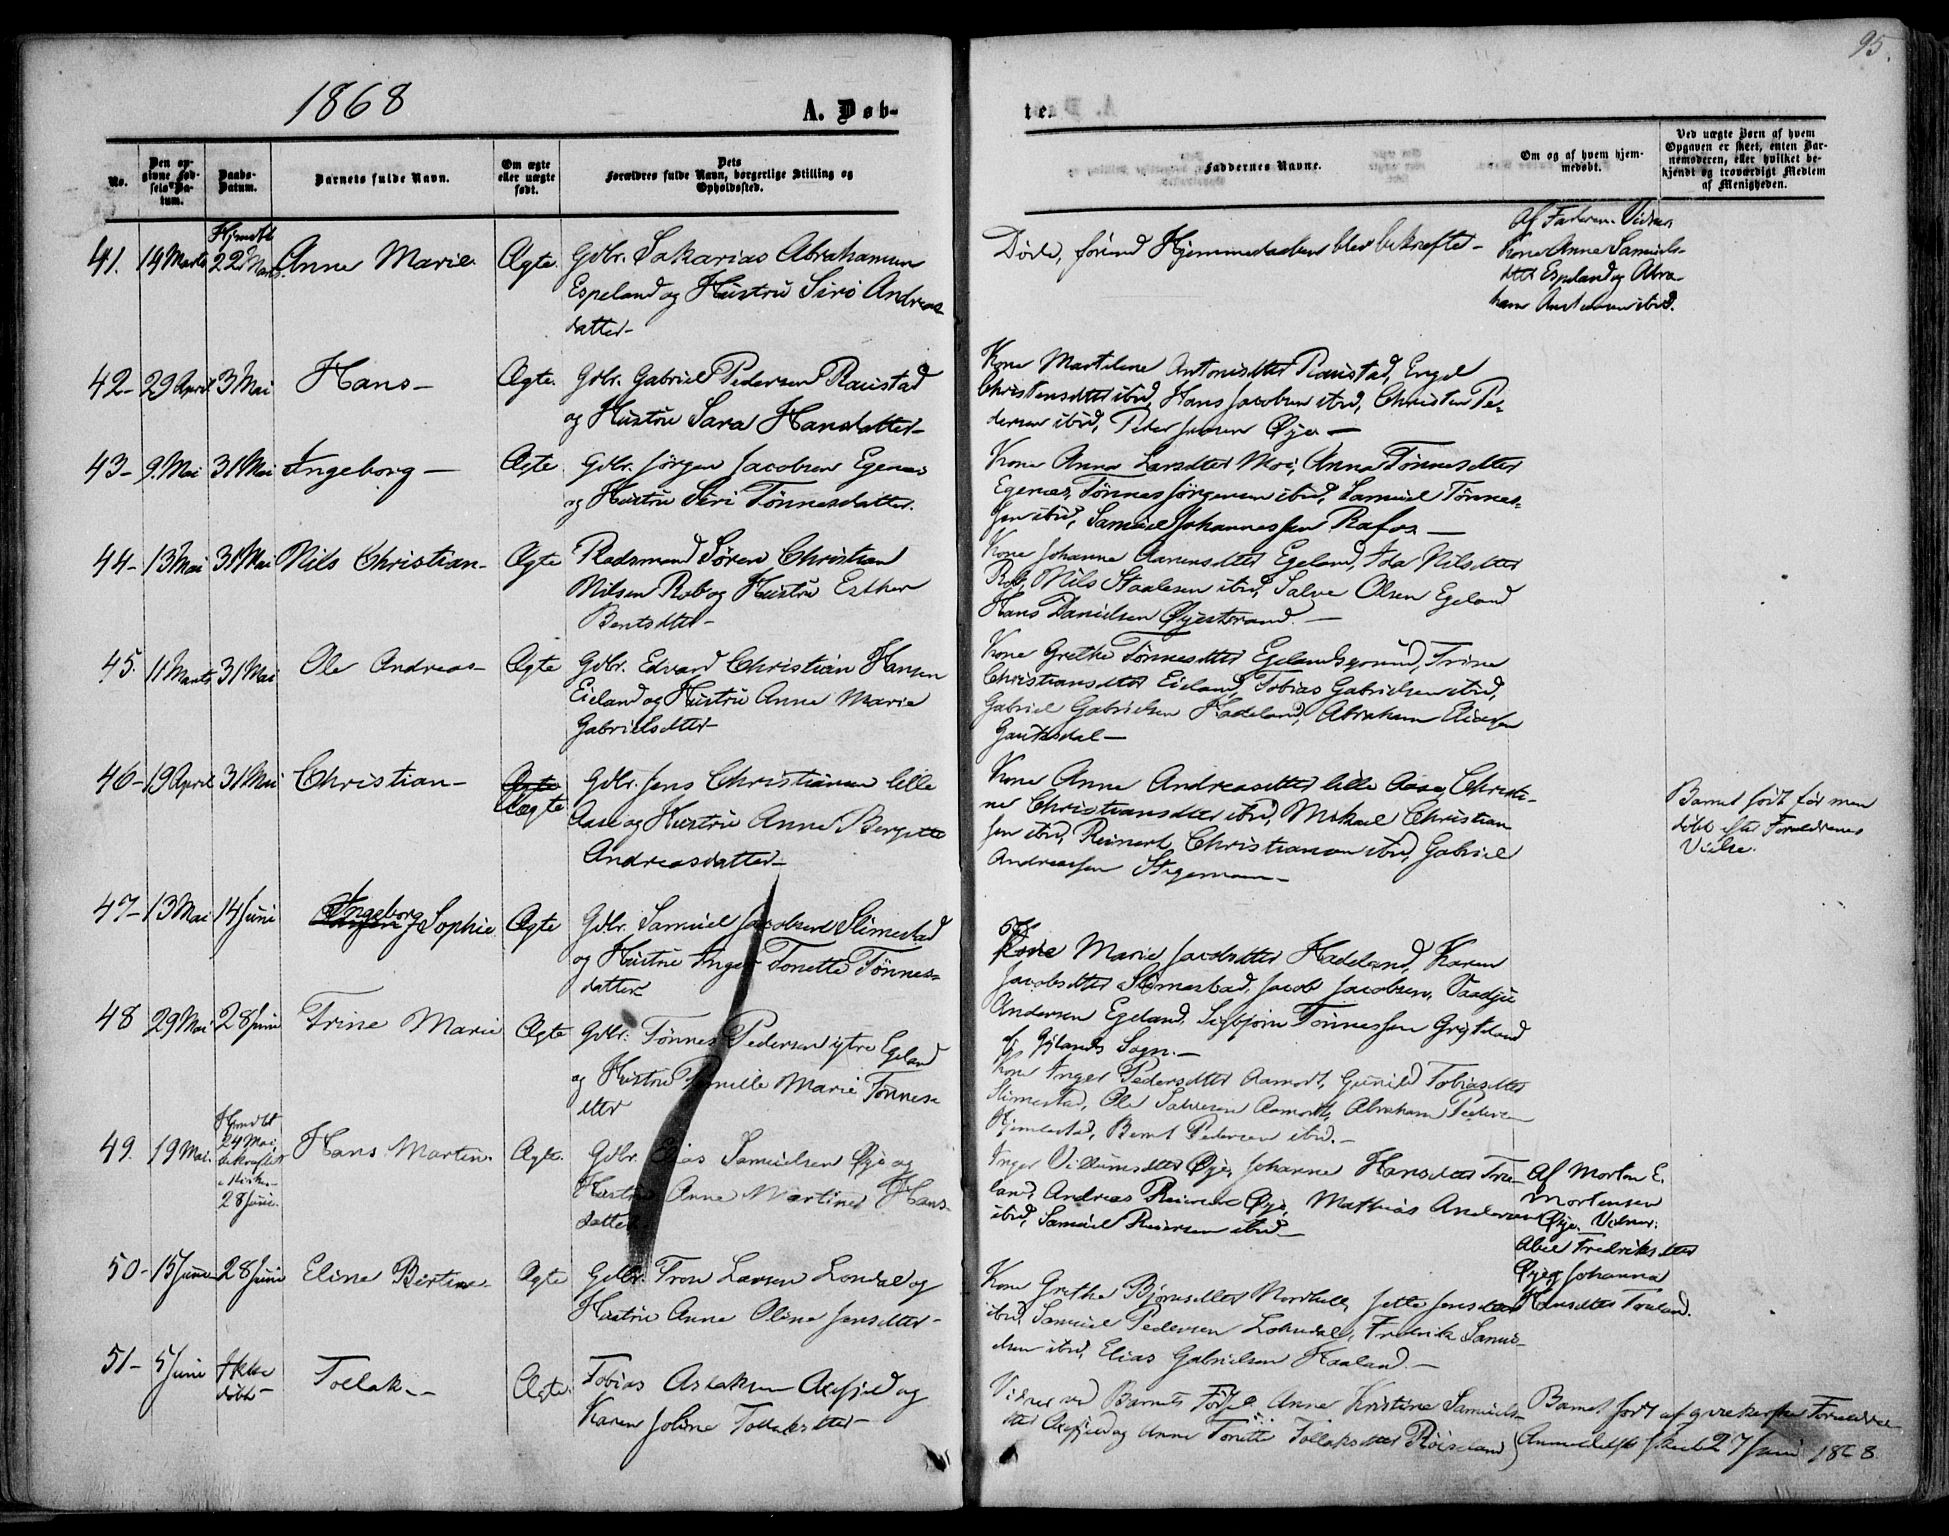 95.
1868
A. Døb-
te.
No.
Den op-
givne Fød-
sels-Da-
tum.
Daabs-
Datum.
Barnets fulde Navn.
Om ægte
eller uægte
født.
Dets
Forældres fulde Navn, borgerlige Stilling og
Opholdssted.
Faddernes Navne.
Om og af hvem hjem-
medøbt.
Ved uægte Børn af hvem
Opgaven er skeet, enten Bar-
nemoderen, eller hvilket be-
kjendt og troværdigt Medlem
af Menigheden.
41. 14 Marts Hjmdbt 22 Marts Anne Marie Ægte. Gdbr. Sakarias Abrahamsen
Espeland og Hustru Siri Andreas-
datter-
Døde, førend Hjemmedaaben blev bekræftet-
Af Faderen. Vidner,
Kone Anne Samuels-
dtter Espeland og Abra-
ham ibid.
42- 29 April 3 Mai Hans- Ægte. Gdbr. Gabriel Pedersen Raustad
og Hustru Sara Hansdatter-
Kone Martilene Antonisdtter Raustad, Engel
Christensdtter ibid, Hans Jacobsen ibid, Christen Pe-
dersen ibid, Peder Jensen Øye-
43- 9. Mai 31 Mai Ingeborg- Ægte. Gdbr. Jørgen Jacobsen Egenæs
og Hustru Siri Tønnesdatter.
Kone Anna Larsdtter Moi, Anna Tønnesdtter
Egenæs, Tønnes Jørgensen ibid, Samuel Tønnes-
sen ibid, Samuel Johannessen Rafos-
44- 13 Mai 31 Mai Nils Christian- Ægte Søren Christian
Nilsen Rob og Hustru Esther
Bentsdtter-
Kone Johanne Aanensdtter Egeland, Ida Nilsdtter
Rob, Nils Staalesen ibid, Salve Olsen Egeland
Hans Danielsen Øyestrand.-
45. 11 Marts 31 Mai Ole Andreas- Ægte Gdbr. Edvard Christian Hansen
Eieland og Hustru Anne Marie
Gabrielsdtter
Kone Grethe Tønnesdtter Egelandsgrund, Trine
Christiansdtter Eieland, Tobias Gabrielsen ibid,
Gabriel Gabrielsen Hadeland, Abraham Eliesen
Gautesdal-
46- 19 April 31 Mai Christian- Ægte Uægte Gdbr. Jens Christiansen lille
Aase og Hustru Anne Bergitte
Andreasdatter-
Kone Anne Andreasdtter lille Aase, Christi-
ne Christiansdtter ibid, Mikael Christian
sen ibid, Reinert Christiansen ibid, Gabriel
Andreassen Stegemoen-
Barnet født før men
døbt efter Forældrenes
Vielse.
47- 13 Mai 14 Juni Ingeborg Sophie Ægte Gdbr. Samuel Jacobsen Slimestad
og Hustru Inger Tonette Tønnes-
datter
Marie Jacobsdtter Hadeland, Karen
Jacobsdtter Slimestad, Jacob Jacobsen, Vaadje
Andersen Egeland, Sigbjørn Tønnessen
af Gylands Sogn.-
48 29 Mai 28 Juni Trine Marie Ægte Gdbr. Tønnes Pedersen ytre Egeland
og Hustru Marie Tønnes-
dtter
Kone Inger Pedersdtter Aamodt, Gunild Tobiasdtter
Slimestad, Ole Salvesen Aamodt, Abraham Pedersen
Bernt Pedersen ibid.-
49. 19 Mai. Hjmdbt 24 Mai, bekræftet i Kirken 28 Juni. Hans Martin. Ægte. Gdbr. Elias Samuelsen Øye og
Hustru Anne Martine Hans-
datter
Inger Villumsdtter Øye, Johanne Hansdtter
land, Andreas Reiersen Øye, Mathias Andersen
ibid, Samuel Reiersen ibid-
Af Morten E.
Mortensen
Øye. Vidner:
Abel Fredriksdtter
Øye og Johanna
Hansdtter
50- 15 Juni 28 Juni Eline Bertine- Ægte Gdbr. Tron Larsen Londal og
Hustru Anne Oline Jensdtter-
Kone Grethe Bjørnsdtter Jette Jensdtter
ibid, Samuel Pedersen Fredrik Samu-
elsen ibid, Elias Gabrielsen Haaland.-
51- 5 Juni Ikke døbt- Tollak- Ægte. Tobias Aslaksen og
Karen Joline Tollaksdtter-
Vidner ved Barnets Fødsel Anne Kristine Samuels-
dtter og Anne Tonette Tollaksdtter Røiseland
Barnet født af Forældre
Anmeldelse skeet 27 Juni 1868.